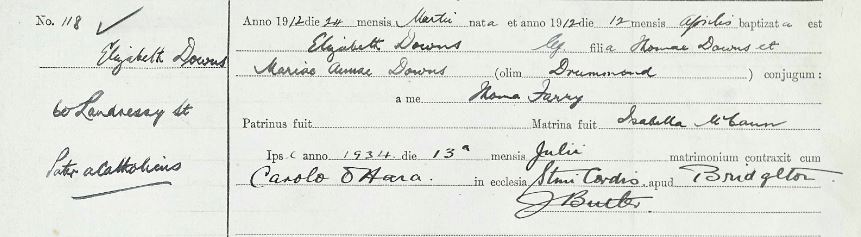 No. 118 ✓
Elizabeth Downs
60 Landressy St
Pater acatholicus
Anno 1912 die 24 mensis Martii nata et anno 1912 die 12 mensis Aprilis baptizata est
Elizabeth Downs filia Thomae Downs et
Mariae Annae Downs (olim Drummond ) conjugum :
a me Thoma Farry
Patrinus fuit Matrina fuit Isabella McCann
Ips anno 1934 die 13ª mensis Julii matrimonium contraxit cum
Carolo O'Hara. in ecclesia Ssmi Cordis. apud Bridgeton.
J Butler.